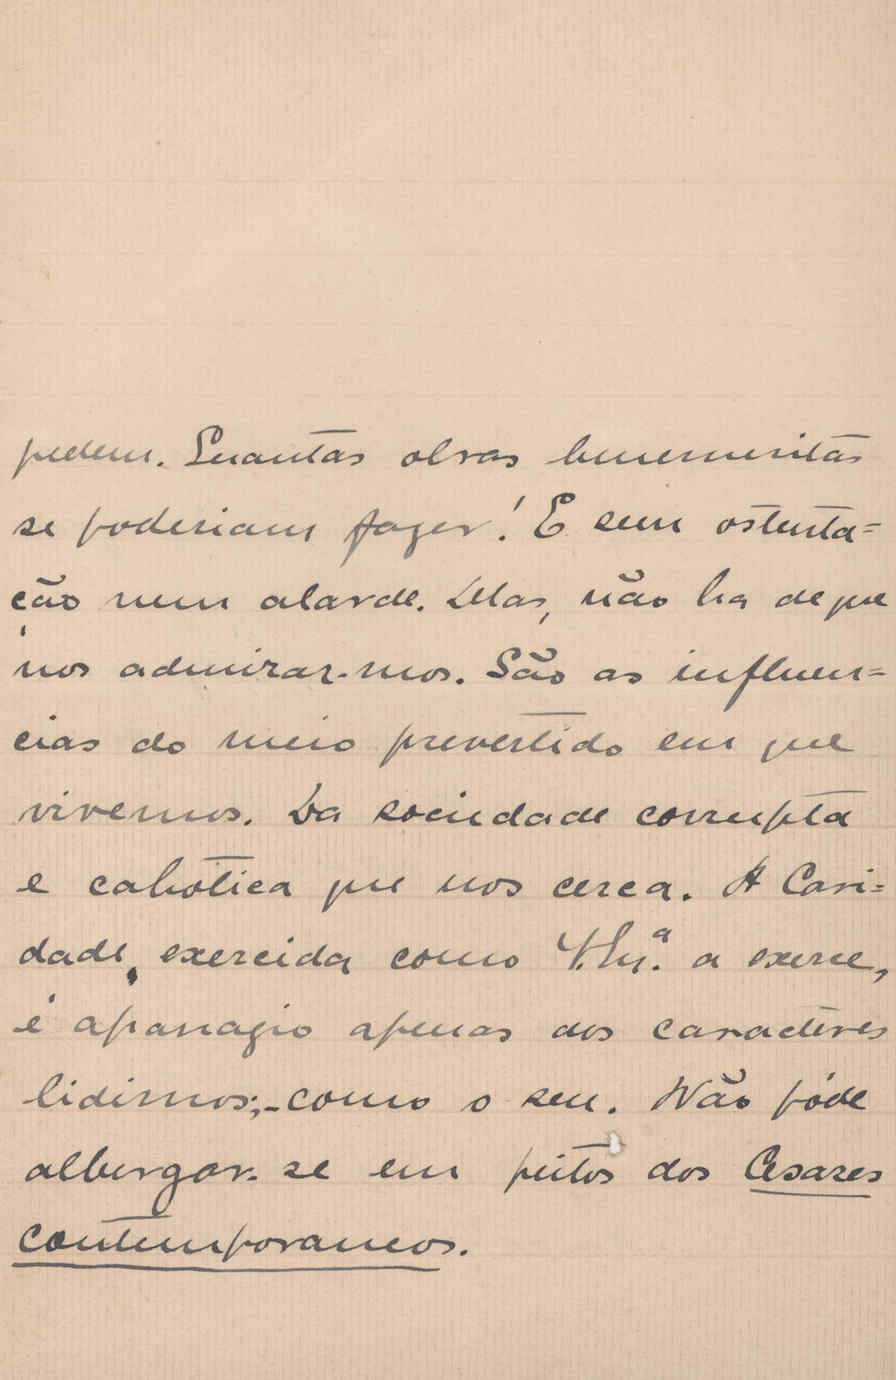 pedem. Quantas obras benemeritas
se poderiam fazer! E sem ostenta=
ção nem alarde. Mas, não ha de que
nos admirar-mos. São as influen=
cias do meio prevertido em que
vivemos. Da sociedade corrupta
e cahotica que nos cerca. A Cari=
dade, exercida como V. Ex.ª a exerce,
é apanagio apenas dos caractéres
lidimos;-como o seu. Não póde
albergar-se em peitos dos Cesares
contemporaneos.